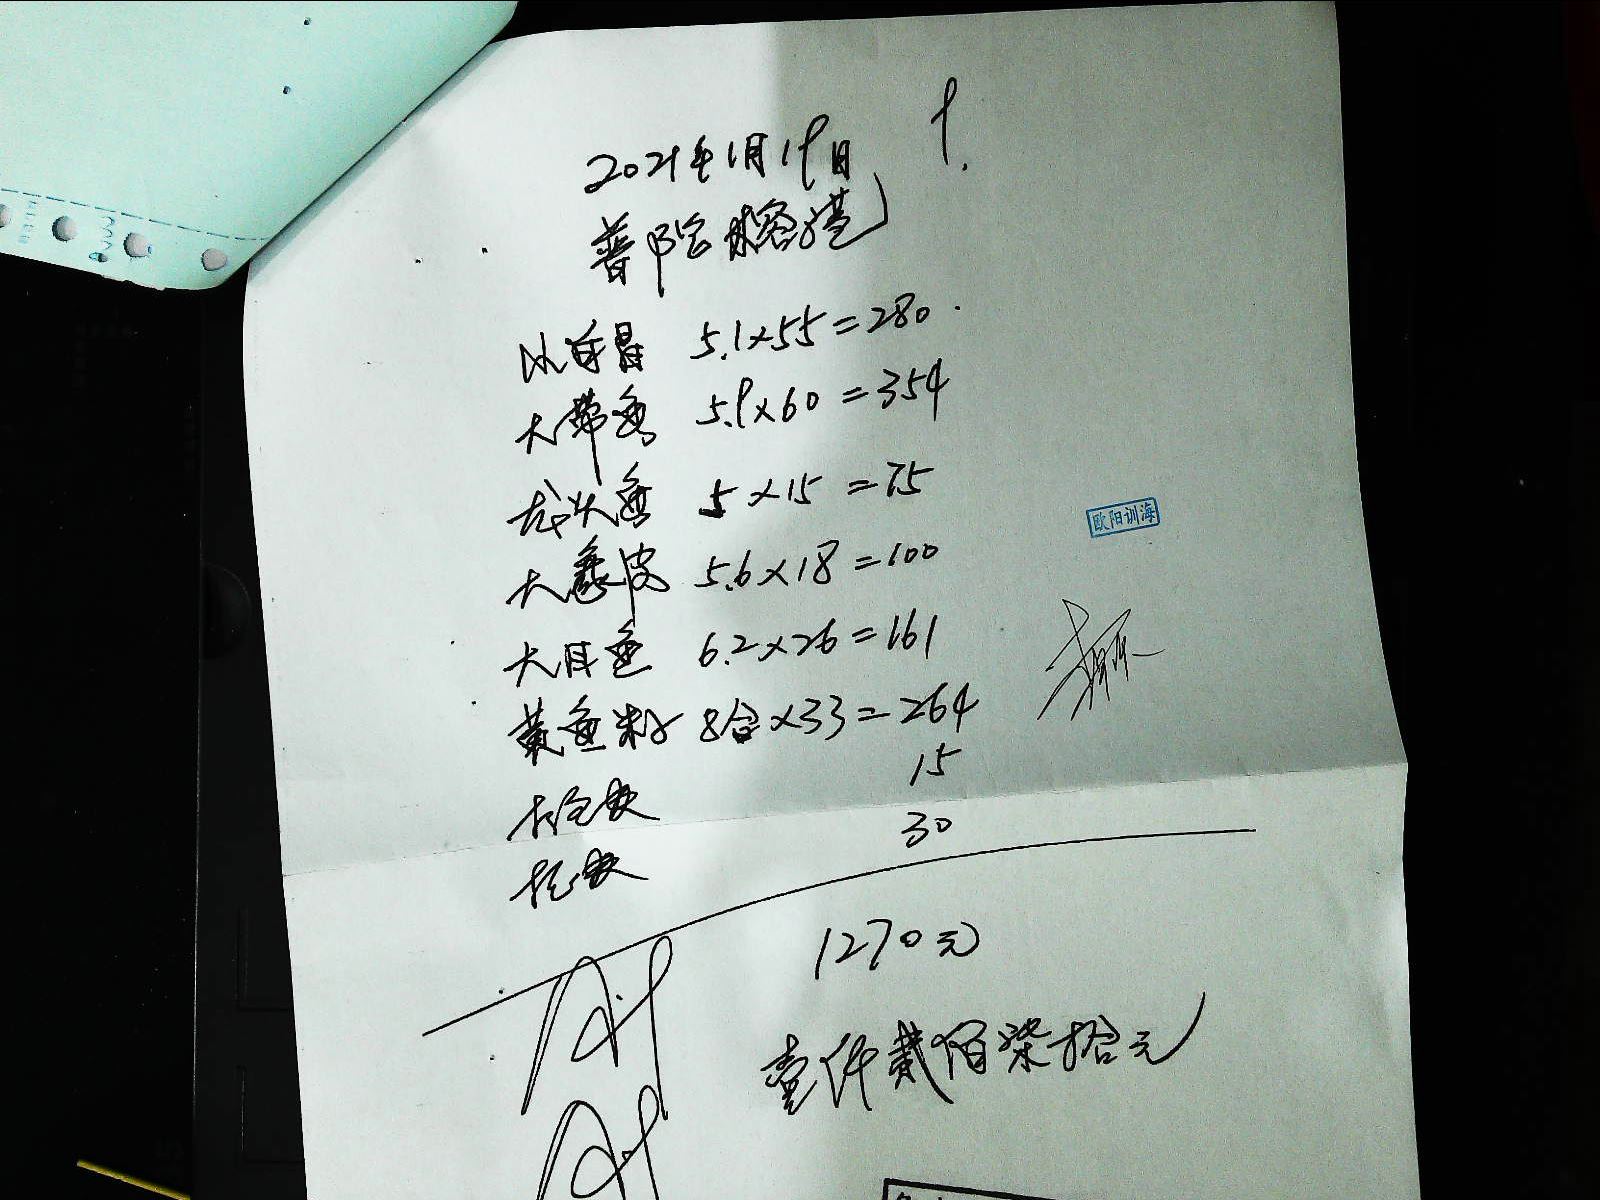 2021年1月19日
普陀
小白昌 5.1×55=280
大带鱼 5.9×60=354
龙头鱼 5×15=75
大 皮 5.6×18=100
大目鱼 6.2×26=161
黄鱼 8合×33=264
15
30
欧阳训海
1270元
壹仟贰佰柒拾元